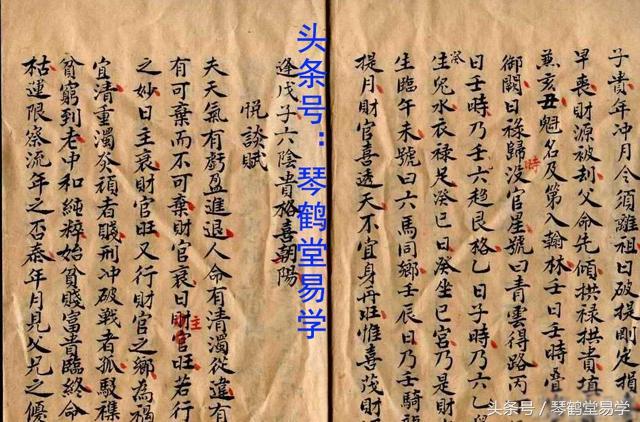 子貴年冲月令須離祖日破提剛定損
早喪財源被刦父命先傾拱禄拱貴填
兼亥丑魁名及第入翰林壬日壬時疊
御闕日禄歸時没官星號曰青雲得路丙
日壬時乃壬六趋艮格乙日子時乃六乙
癸生兒水衣禄足癸巳日癸坐巳宫乃是財
生臨午未號曰六馬同鄉壬辰日乃壬騎
提月財官喜透天不宜身旺惟喜財
逢戊子六陰貴格喜朝陽
悦談賦
夫天氣有虧盈進退人命有清濁從違有
有可棄而不可棄財官衰日主財官旺若行
之妙日主衰財官旺又行財官之鄉為禍
宜清重濁灾頑者賤刑冲破戰者孤駁襍
貧窮到老中和純粹始貧賤富貴臨終命
枯運限察流年之否泰年月見父兄之優
头条号：琴鹤堂易学
头条号／琴鹤堂易学